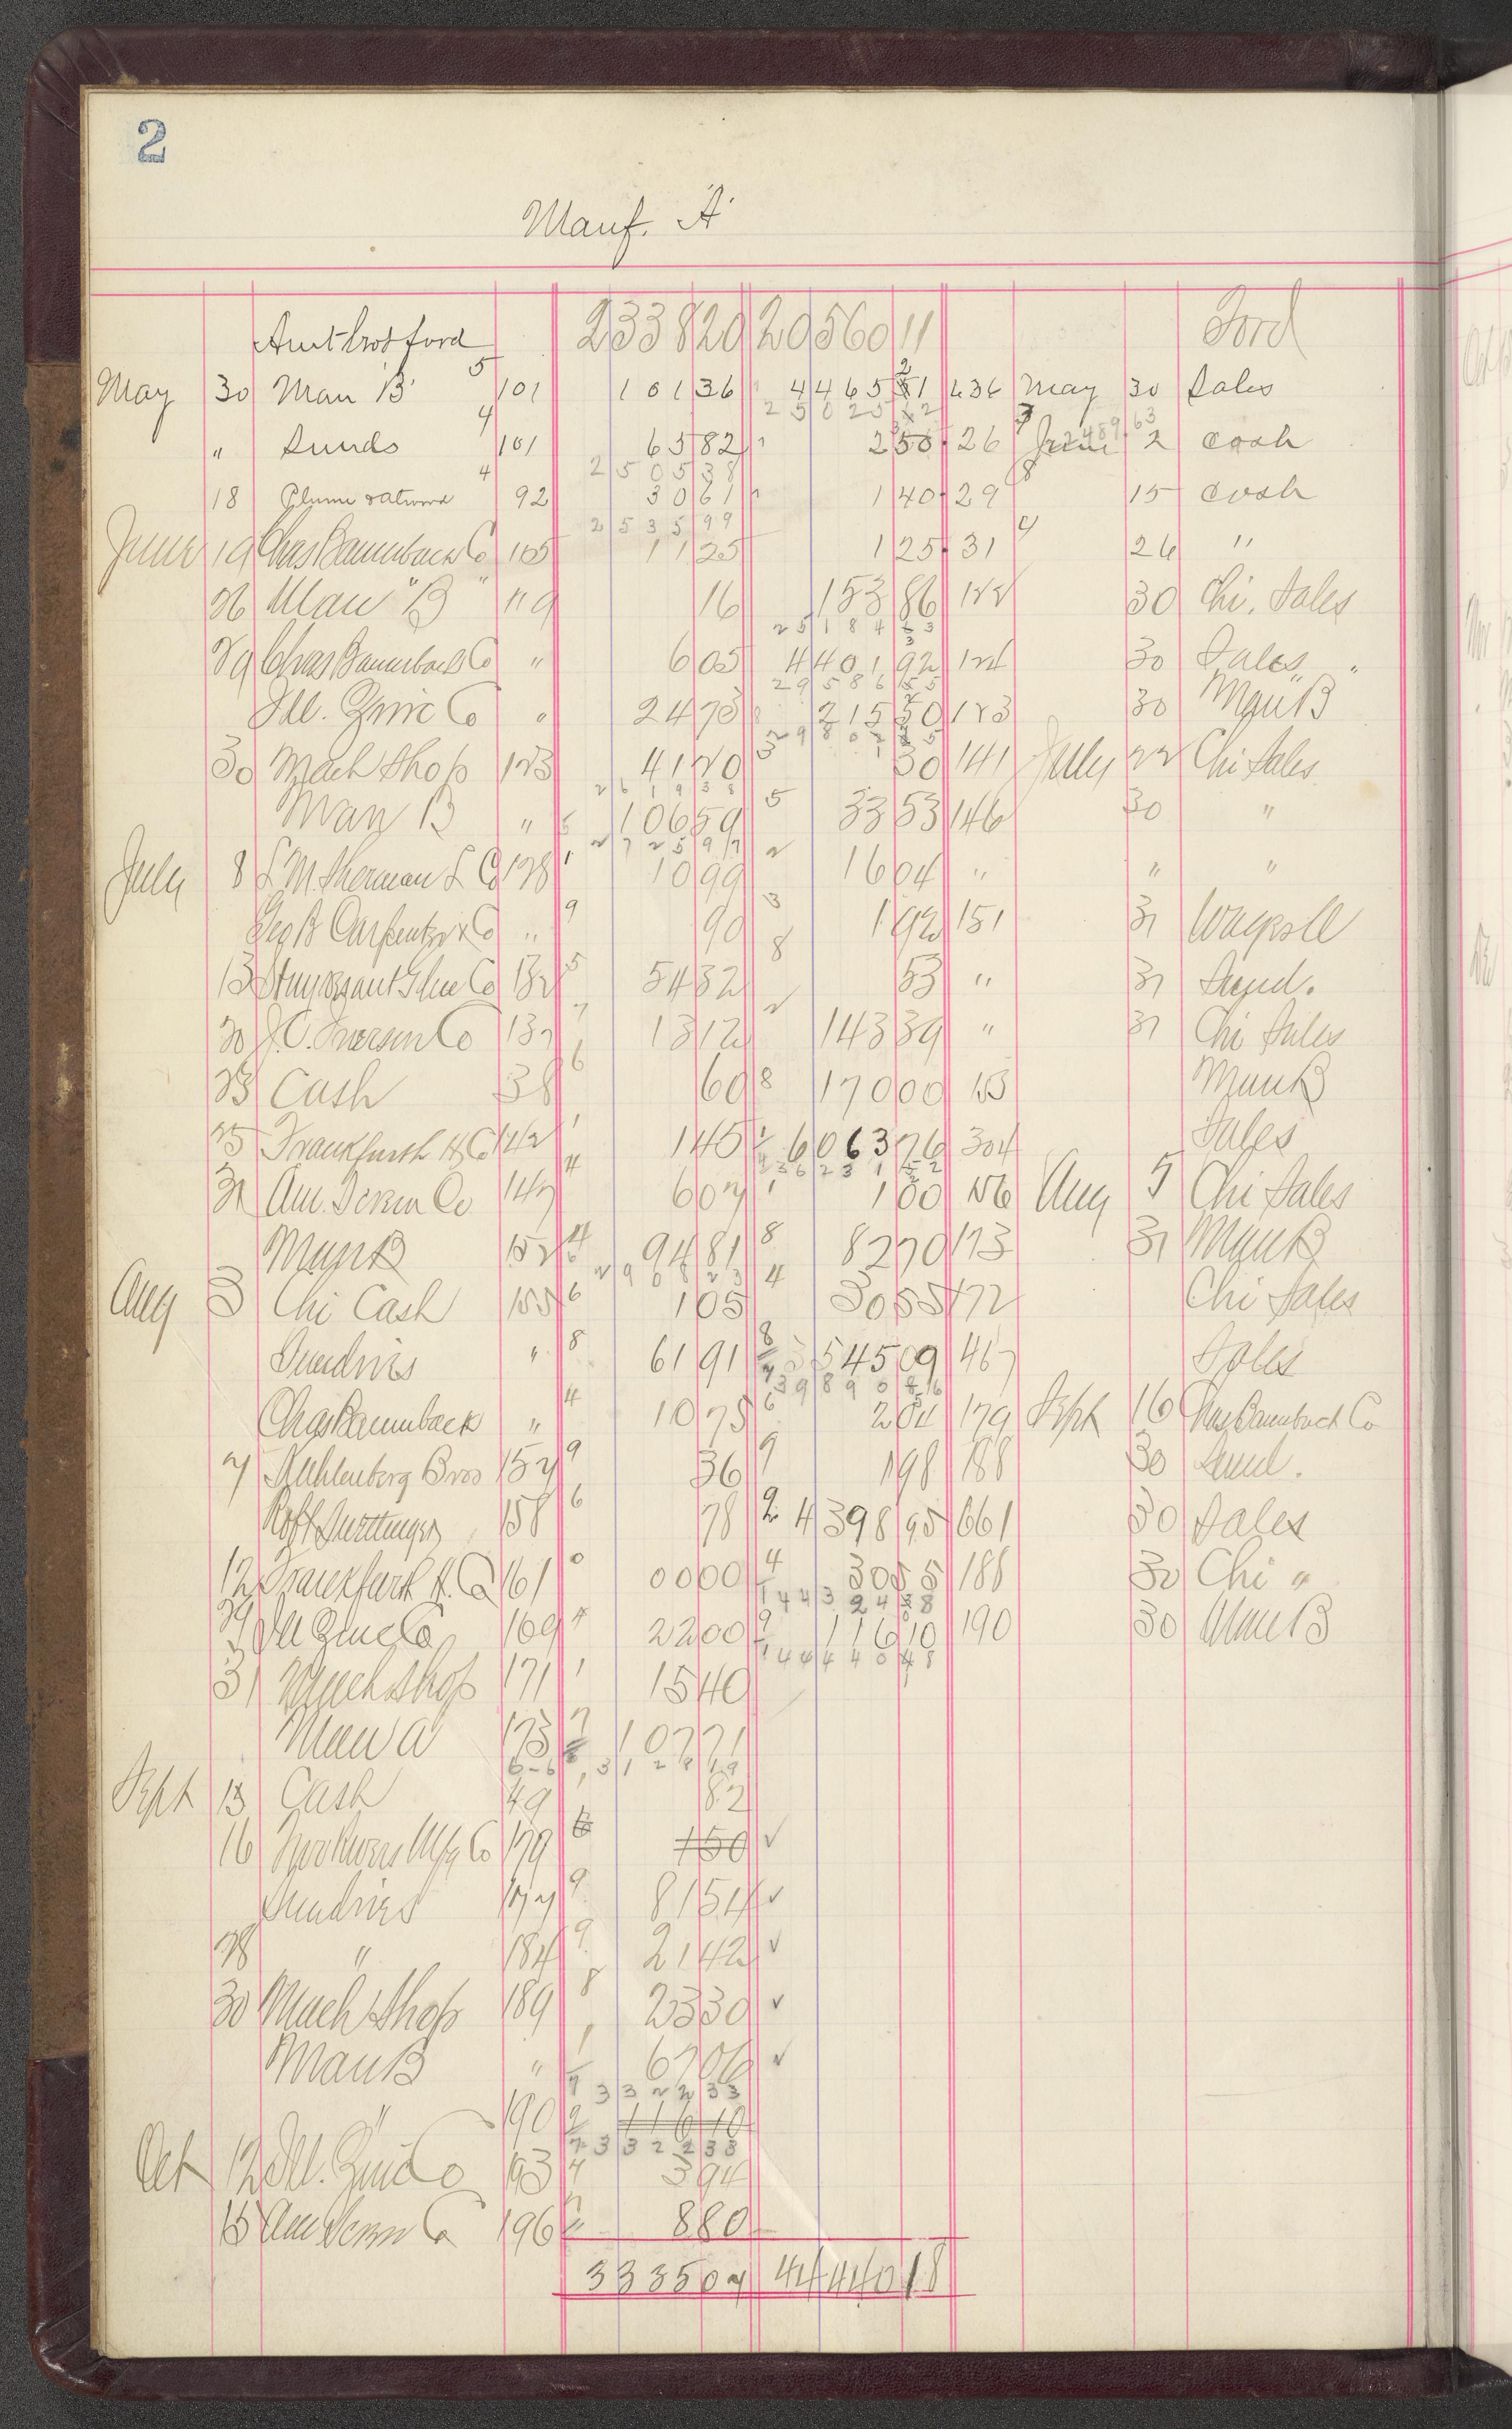 2
Manf. "A"
Amt brot ford 2338 20 20560 11 Ford
May 30 Man "B" 101 101 36 4465 51 636 May 30 Sales
25025 62
" Sunds 101 65 82 2 50 26 June 2 cash
2505 38
18 Plume & Atwood 92 30 61 1 40 29 15 cash
2535 99
June 19 Chas Baumbach Co 105 11 25 1 25 31 26 "
26 Man "B" 119 16 153 86 122 30 Chi. Sales
25184 63
29 Chas Baumbach Co " 6 05 4401 92 124 30 Sales "
29586 55
Ill. Zinc Co " 24 75 215 50 123 30 Man B
30 Mach Shop 123 41 20 30 141 July 22 Chi Sales
2619 38
Man B " 106 59 33 53 146 30 "
2725 97
July 8 L M. Sherman L Co 128 10 99 16 04 " " "
Geo B Carpenter & Co " 90 1 92 151 31 Wagsoll
13 Stuyvesant Glue Co 132 54 32 53 " 31 Sund.
20 J.C. Iverson Co 137 13 12 143 39 " 31 Chi Sales
23 Cash 38 60 170 00 153 Man B
25 Frankfurth H Co 142 1 45 6063 76 304 Sales
31 Am. Screw Co 147 6 07 1 00 156 Aug 5 Chi Sales
Man B 152 94 81 82 70 173 31 Man B
2908 23
Aug 3 Chi Cash 155 1 05 30 55 172 Chi Sales
Sundries " 61 91 3545 09 467 Sales
39890 86
Chas Baumback " 10 75 2 04 179 Sept 16 Chas Baumbach Co
7 Kuhlenberg Bros 157 36 1 98 188 30 Sund.
158 78 4398 95 661 30 Sales
12 Frankfurth H. Co 161 00 00 30 55 188 30 Chi "
44324 38
29 Ill Zinc Co 169 22 00 116 10 190 30 Man B
44440 48
31 Mach Shop 171 15 40
Man A 173 107 71
3128 19
Sept 13 Cash 49 82
16 Two Rivers Mfg Co 179 1 50 ✓
Sundries 177 81 54 ✓
28 " 184 21 42 ✓
30 Mach Shop 189 23 30 ✓
Man B " 67 06 ✓
3322 33
" 190 116 10
3322 33
Oct 12 Ill. Zinc Co 193 3 94
15 Am Screw Co 196 8 80
3335 07 44440 18